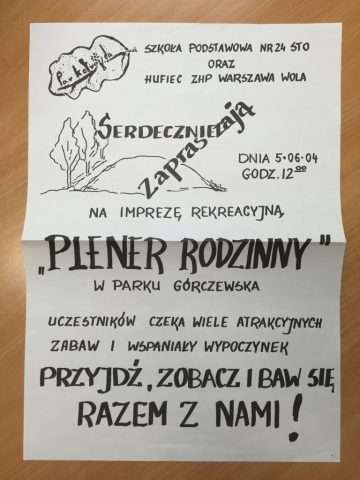 SZKOŁA PODSTAWOWA NR 24 STO
ORAZ
HUFIEC ZHP WARSZAWA WOLA
SERDECZNIE
Zapraszają
DNIA 5.06.04
GODZ. 12⁰⁰
NA IMPREZĘ REKREACYJNĄ
„PLENER RODZINNY"
W PARKU GÓRCZEWSKA
UCZESTNIKÓW CZEKA WIELE ATRAKCYJNYCH
ZABAW I WSPANIAŁY WYPOCZYNEK
PRZYJDŹ, ZOBACZ I BAW SIĘ
RAZEM Z NAMI!